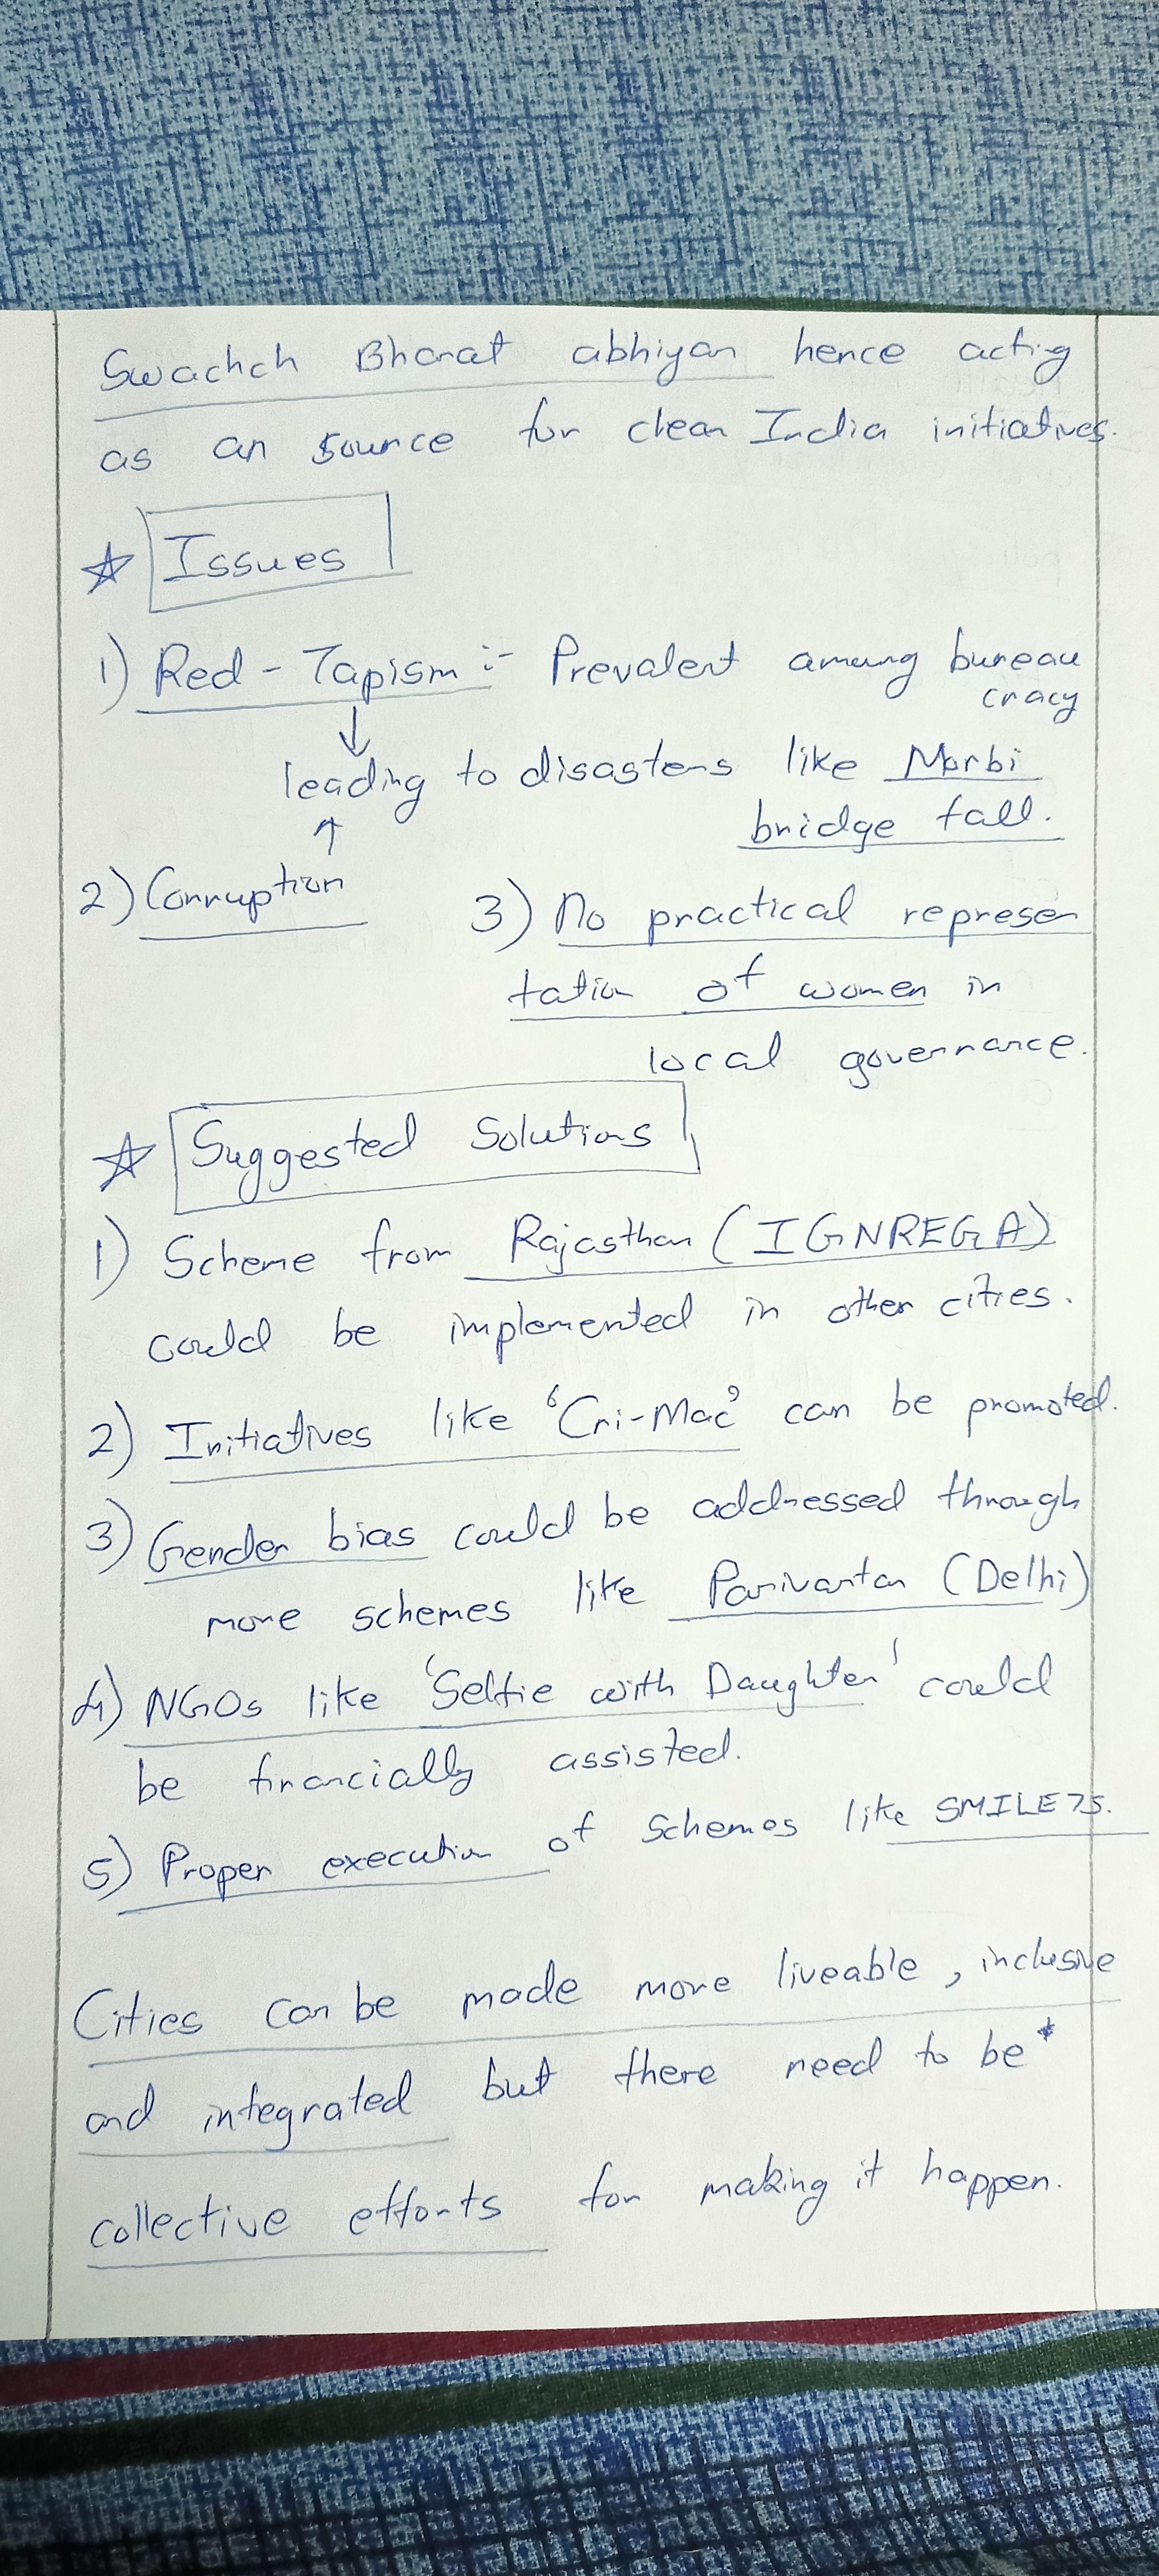 Swachch Bharat abhiyan hence acting
as an source for clean India initiatives.
Issues
1) Red-Tapism :- Prevalent among bureau
cracy
leading to disasters like Morbi
bridge fall.
2) Corruption
3) No practical represen
tation of women in
local governance.
Suggested Solutions
1) Scheme from Rajasthan (IGNREGA)
could be implemented in other cities.
2) Initiatives like 'Cri-Mac' can be promoted.
3) Gender bias could be addressed through
more schemes like Parivartan (Delhi)
4) NGOs like 'Selfie with Daughter' could
be financially assisted.
5) Proper execution of schemes like SMILE 75.
Cities can be made more liveable, inclusive
and integrated but there need to be
collective efforts for making it happen.